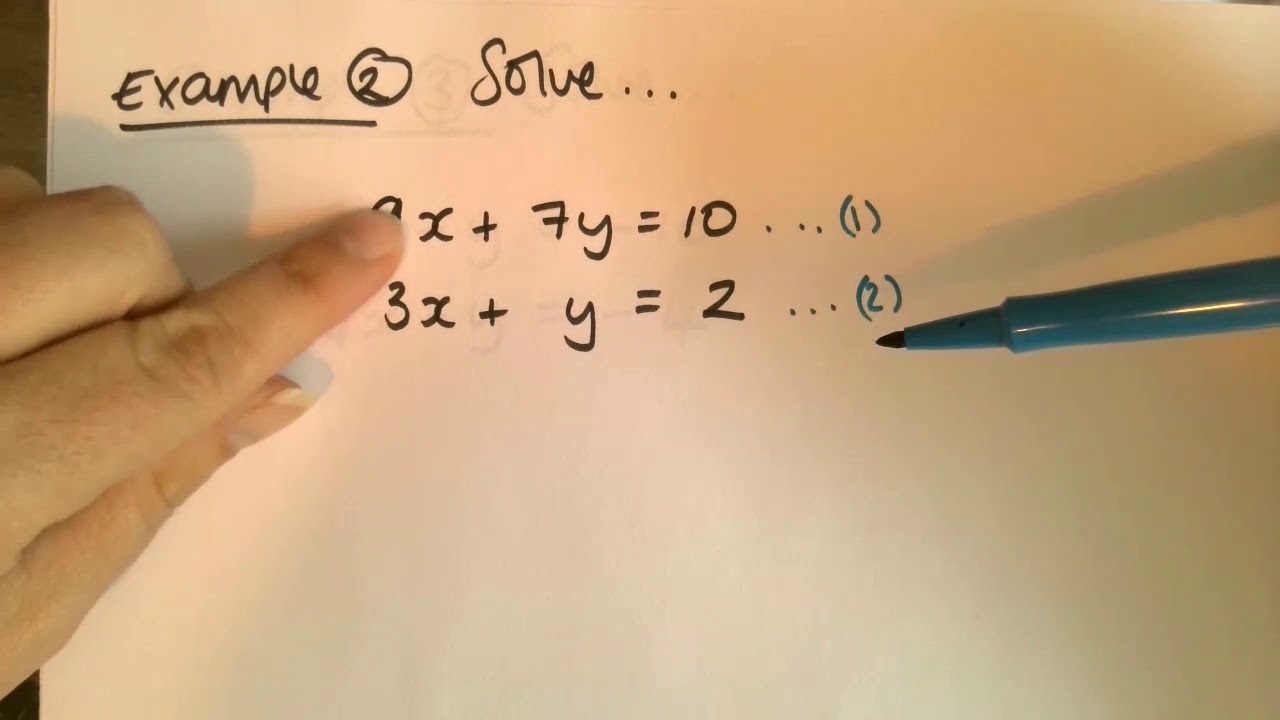 Example ② Solve...
9x + 7y = 10 ....(1)
3x + y = 2 ...(2)